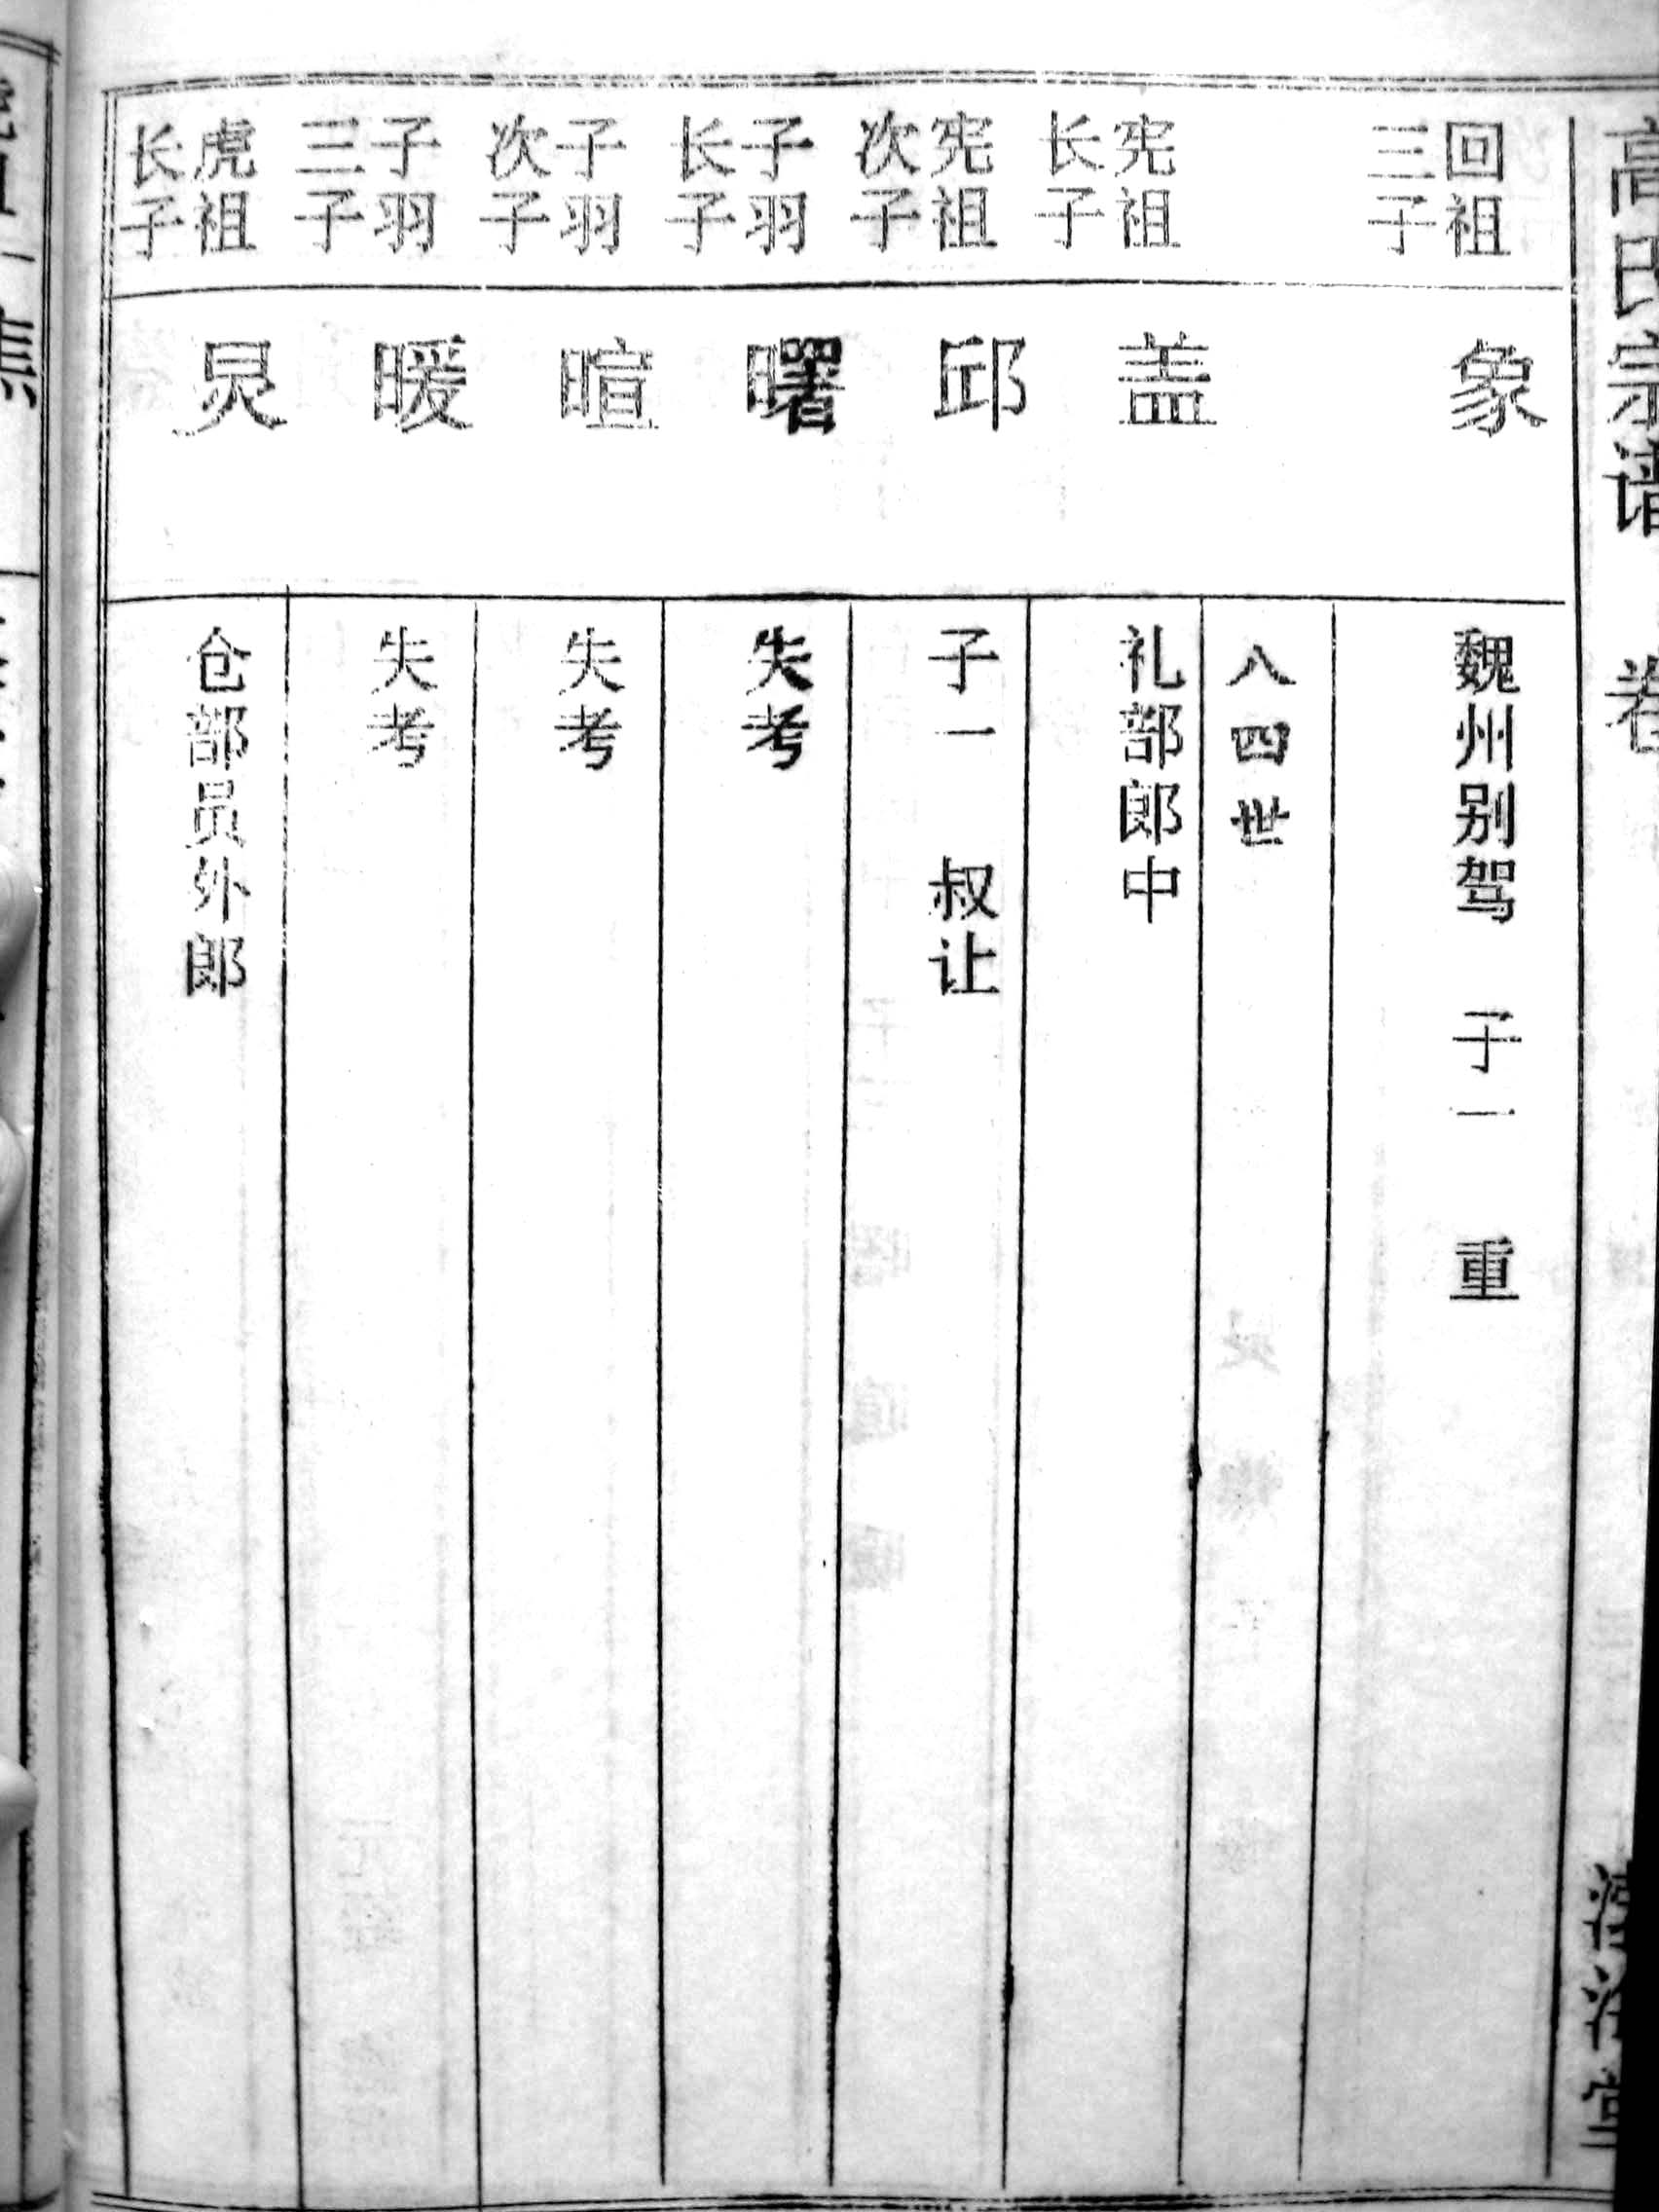 高氏宗谱 卷
回祖三子
象
魏州别驾 子一 重
八四世
宪祖长子
盖
礼部郎中
宪祖次子
邱
子一 叔让
子羽长子
曙
失考
子羽次子
暄
失考
子羽三子
暖
失考
虎祖长子
炅
仓部员外郎